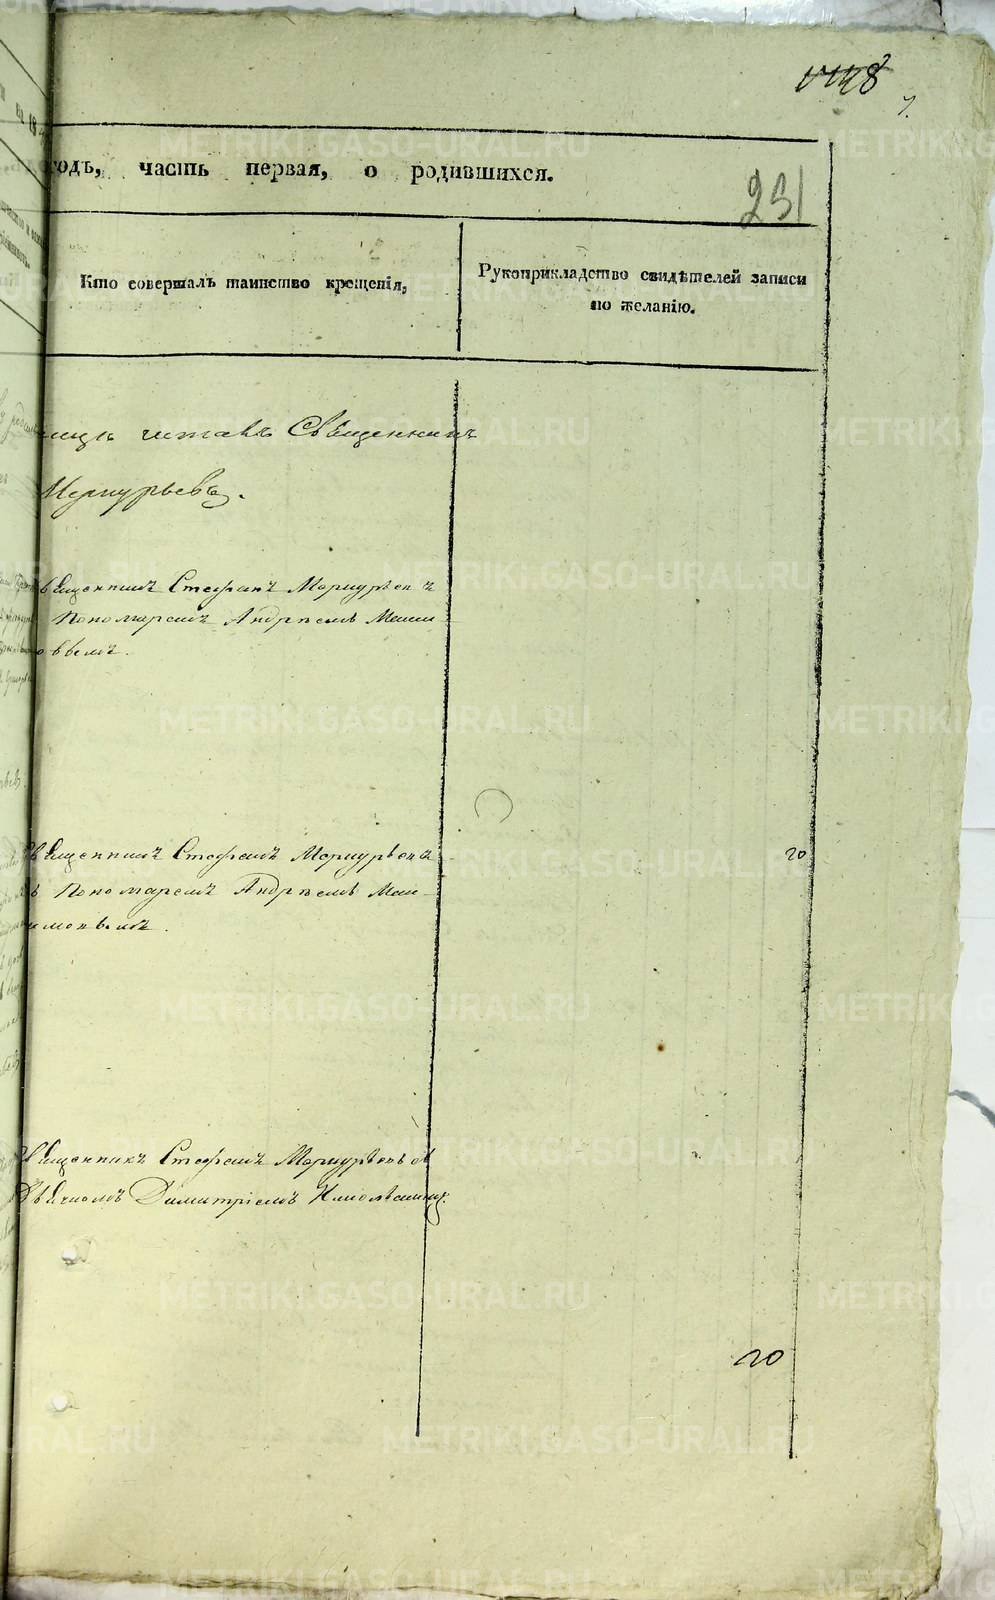 231
годъ, часть первая, о родившихся.
Кто совершалъ таинство крещенія,
Рукоприкладство свидѣтелей записи
по желанію.
читавъ Священникъ
Меркурьевъ.
Священникъ Стефанъ Меркурьевъ съ
Пономаремъ Андреемъ
Священникъ Стефанъ Меркурьевъ
съ Пономаремъ Андреемъ
20
Священникъ Стефанъ Меркурьевъ съ
Дьячкомъ Димитріемъ
20
METRIKI.GASO-URAL.RU